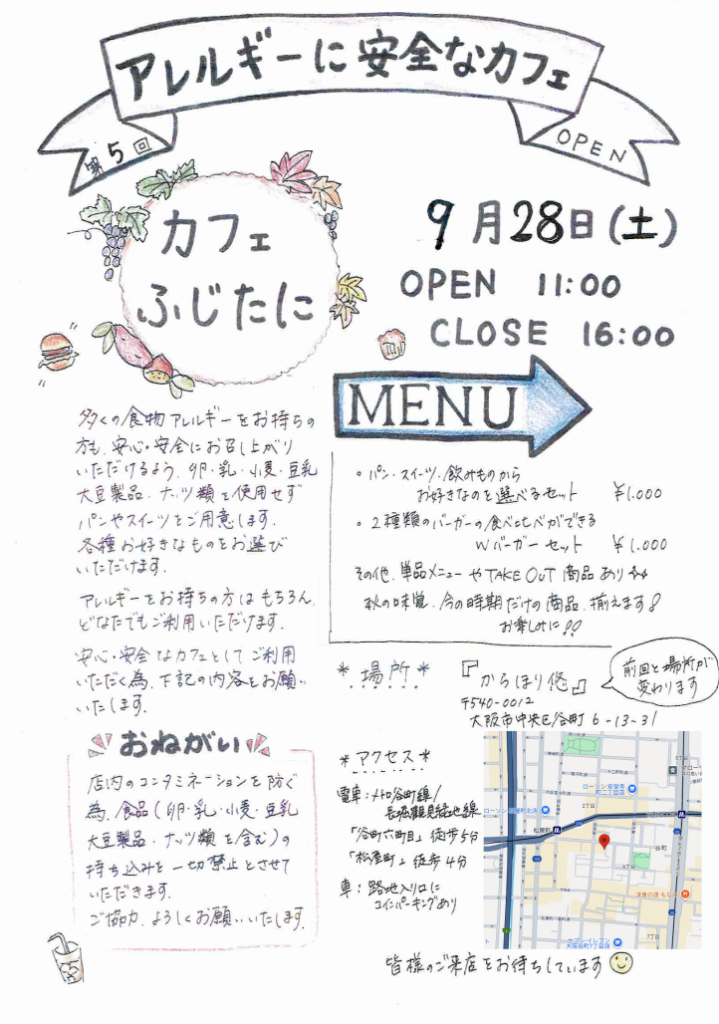 アレルギーに安全なカフェ
第5回
OPEN
カフェ
ふじたに
9月28日(土)
OPEN 11:00
CLOSE 16:00
MENU
多くの食物アレルギーをお持ちの
方も、安心・安全にお召し上がり
いただけるよう、卵・乳・小麦・豆乳
大豆製品・ナッツ類を使用せず
パンやスイーツをご用意します。
各種お好きなものをお選び
いただけます。
アレルギーをお持ちの方はもちろん、
どなたでもご利用いただけます。
安心・安全なカフェとしてご利用
いただく為、下記の内容をお願い
いたします。
・パン・スイーツ・飲みものから
お好きなのを選べるセット ¥1.000
・2種類のバーガーの食べ比べができる
Wバーガーセット ¥1.000
その他、単品メニューやTAKE OUT商品あり
秋の味覚、今の時期だけの商品、揃えます!
お楽しみに!!
*場所*
『からほり悠』
前回と場所が
変わります
〒540-0012
大阪市中央区谷町6-13-31
おねがい
店内のコンタミネーションを防ぐ
為、食品(卵・乳・小麦・豆乳
大豆製品・ナッツ類を含む)の
持ち込みを一切禁止とさせて
いただきます。
ご協力、よろしくお願いいたします。
*アクセス*
電車:メトロ谷町線/
長堀鶴見緑地線
「谷町六町目」徒歩5分
「松屋町」徒歩4分
車:路地入り口に
コインパーキングあり
ローソン 安堂寺
町二丁目店
松屋町
谷町
5丁目
6丁目
皆様のご来店をお待ちしています